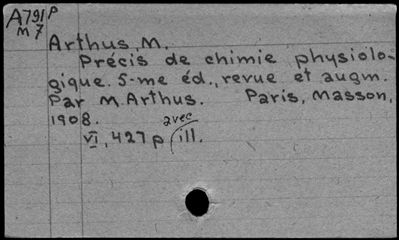 A791p
M7
Arthus, M.
Précis de chimie physiolo-
gique. 5-me éd., revue et augm.
Par M. Arthus. Paris, Masson,
1908.
avec
VI, 427 p ill.